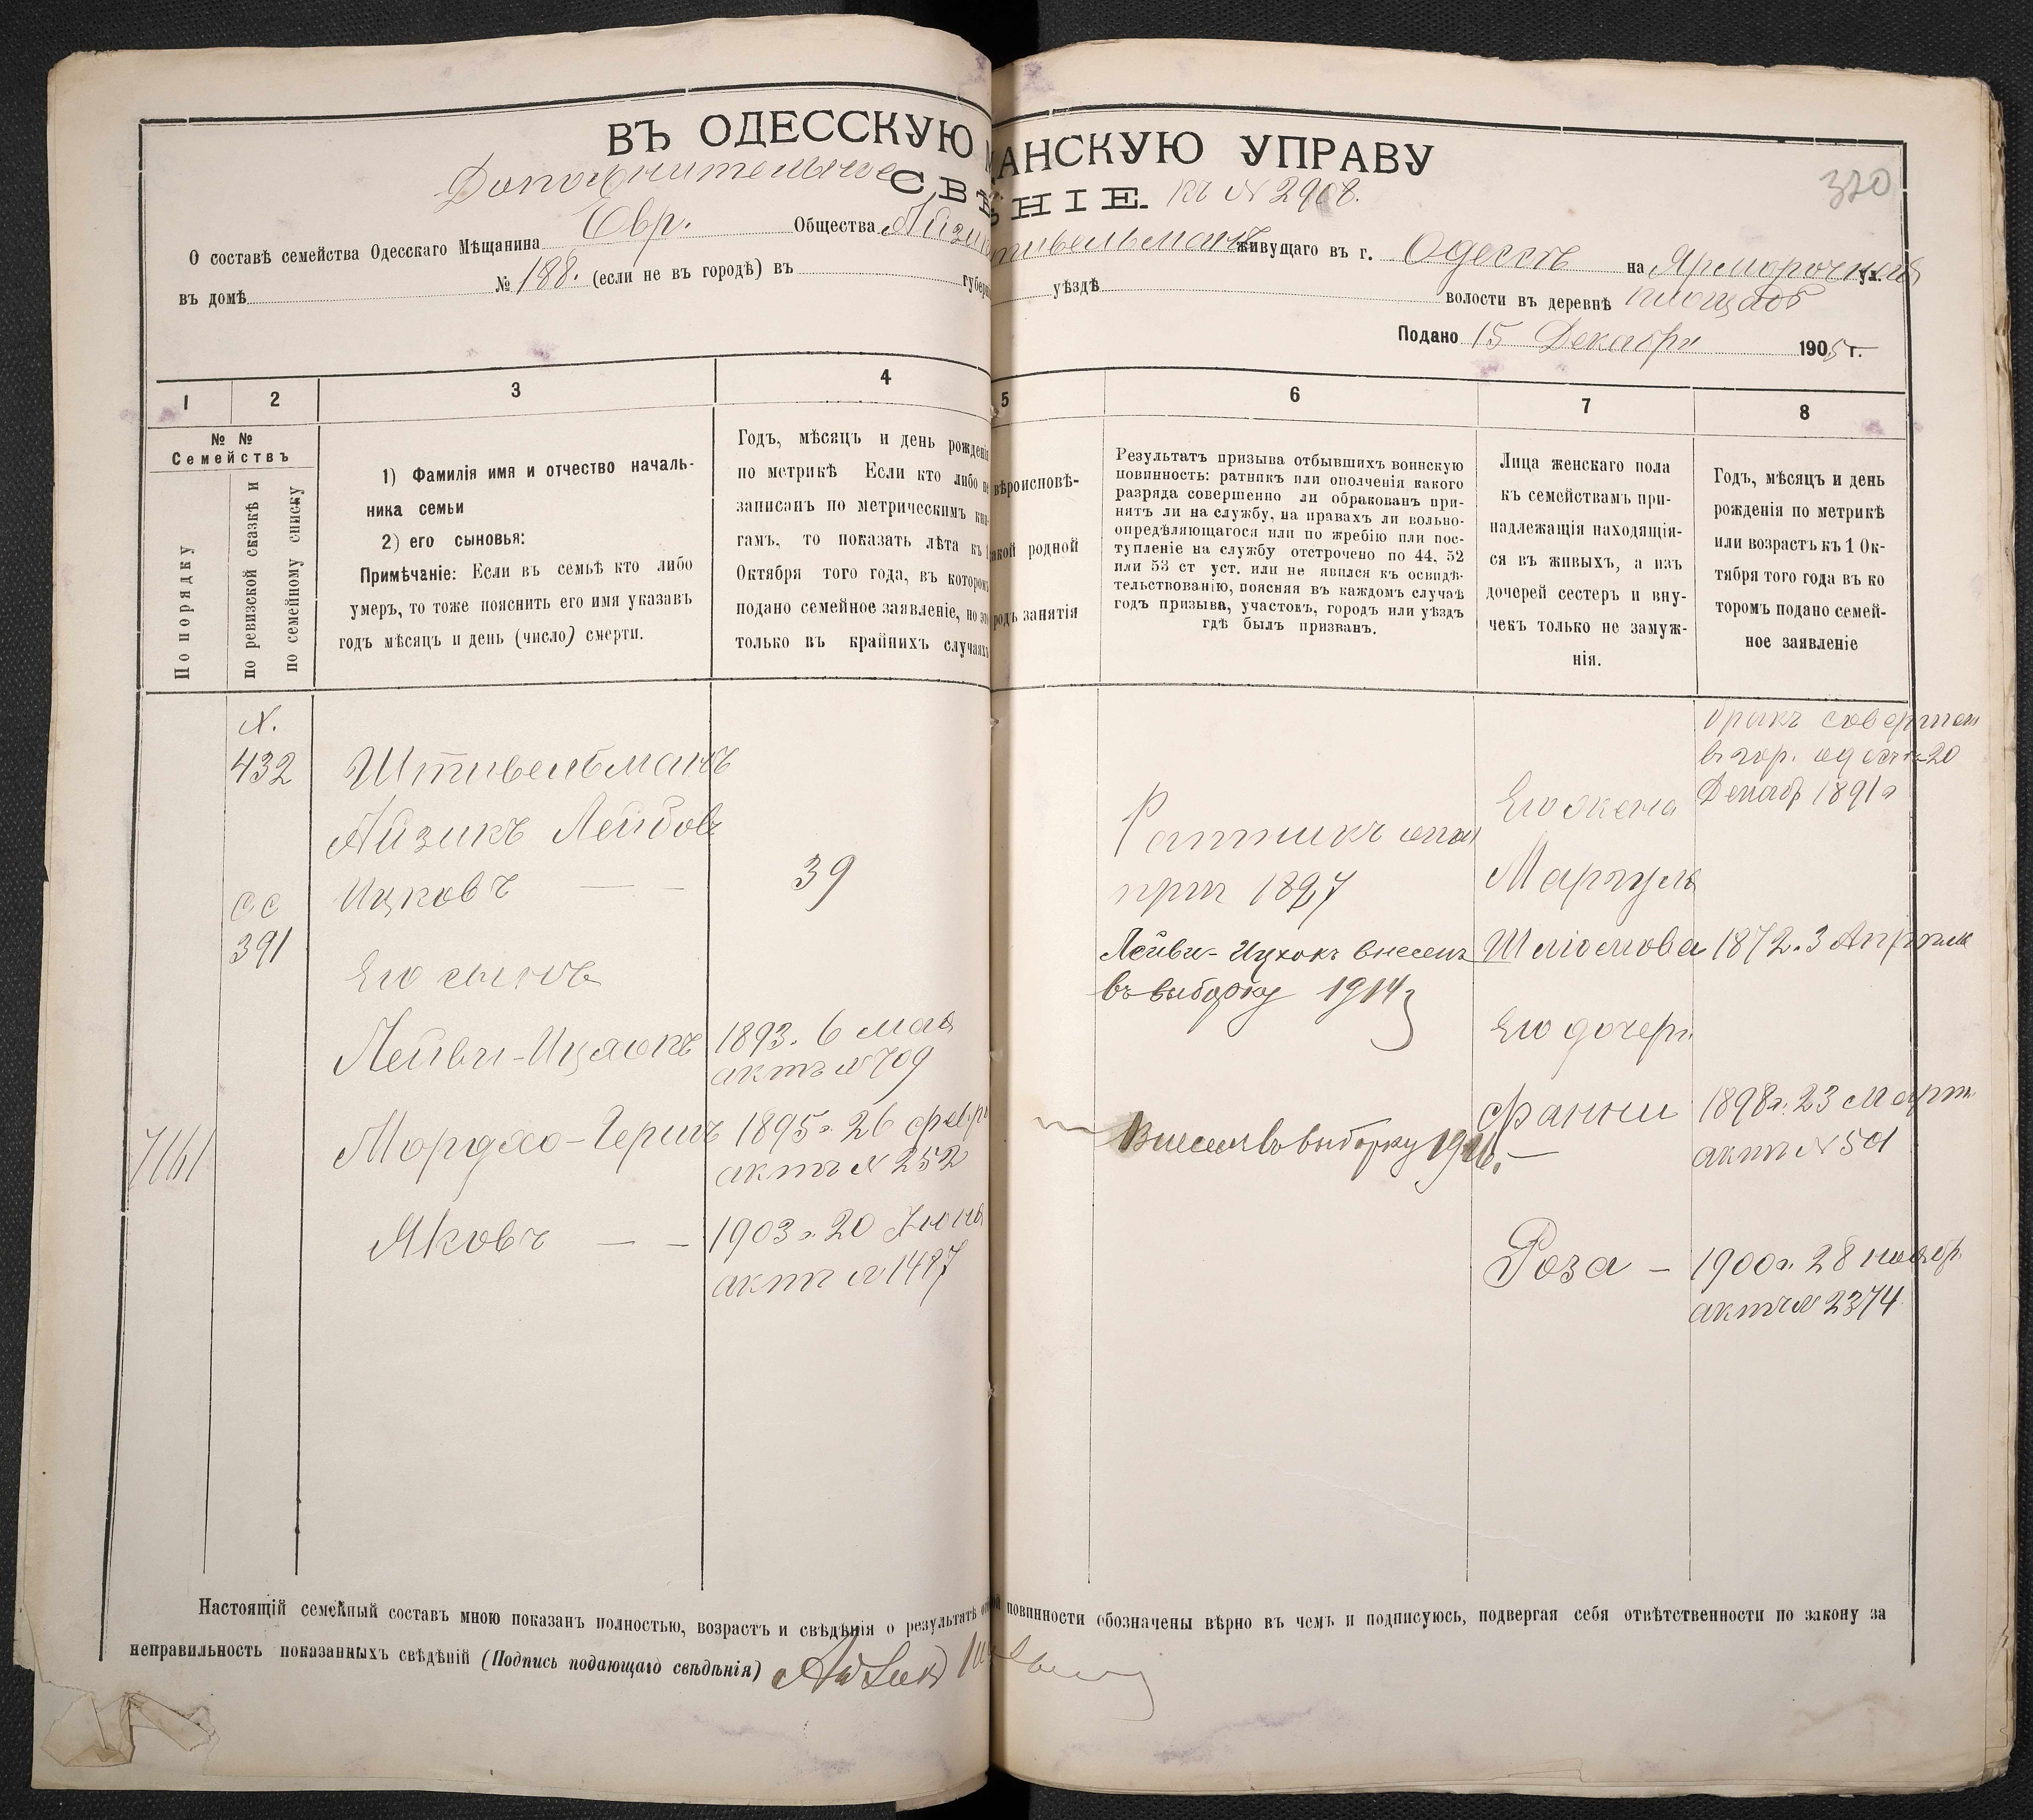 ВЪ ОДЕССКУЮ
АНСКУЮ УПРАВУ
320
Дополнительное СВѢ
НІЕ. къ № 2908.
О составѣ семейства Одесскаго Мѣщанина Евр. Общества Айзи
тивельманъ живущаго въ г. Одессѣ на Ярморочной ул.
въ домѣ № 188. (если не въ городѣ) въ губерн
уѣздѣ волости въ деревнѣ площадѣ
Подано 15 Декабря 1905 г.
1
2
3
4
5
6
7
8
№ №
Семействъ
По порядку
по ревизской сказкѣ и
по семейному списку
1) Фамилія имя и отчество началь-
ника семьи
2) его сыновья:
Примѣчаніе: Если въ семьѣ кто либо
умеръ, то тоже пояснить его имя указавъ
годъ мѣсяцъ и день (число) смерти.
Годъ, мѣсяцъ и день рожденія
по метрикѣ Если кто либо не
записанъ по метрическимъ кни-
гамъ, то показать лѣта къ 1
Октября того года, въ которомъ
подано семейное заявленіе, но это
только въ крайнихъ случаяхъ
вѣроисповѣ-
акой родной
родъ занятія
Результатъ призыва отбывшихъ воинскую
повинность: ратникъ или ополченія какого
разряда совершенно ли обракованъ при-
нятъ ли на службу, на правахъ ли вольно-
опредѣляющагося или по жребію или пос-
тупленіе на службу отстрочено по 44, 52
или 53 ст уст. или не явился къ освидѣ-
тельствованію, поясняя въ каждомъ случаѣ
годъ призыва, участокъ, городъ или уѣздъ
гдѣ былъ призванъ.
Лица женскаго пола
къ семействамъ при-
надлежащія находящія-
ся въ живыхъ, а изъ
дочерей сестеръ и вну-
чекъ только не замуж-
нія.
Годъ, мѣсяцъ и день
рожденія по метрикѣ
или возрастъ къ 1 Ок-
тября того года въ ко
торомъ подано семей-
ное заявленіе
№.
432
Штивельманъ
Айзикъ Лейбовъ
Ицковъ — —
39
Ратникъ опол
при 1897
Его жена
Маргуля
Шліомова
1872. 3 Апрѣля
бракъ совершен
в гор. Одессѣ 20
Декаб 1891 г
с с
391
Его сынъ
Лейви-Ицхокъ
1893. 6 мая
актъ № 709
Лейви-Ицхокъ внесенъ
въ выборку 1914 г
Его дочери
7161
Мордхо-Гершъ
1895 г. 26 февр
актъ № 252
Внесенъ въ выборку 1916.
Фанни —
1898 г. 23 Марта
актъ № 501
Яковъ — —
1903 г. 20 Июня
актъ № 1487
Роза —
1900 г. 28 ноябр.
актъ № 2374
Настоящій семейный составъ мною показанъ полностью, возрастъ и свѣдѣнія о результатѣ
повинности обозначены вѣрно въ чемъ и подписуюсь, подвергая себя отвѣтственности по закону за
неправильность показанныхъ свѣдѣній (Подпись подающаго свѣдѣнія) Айзик